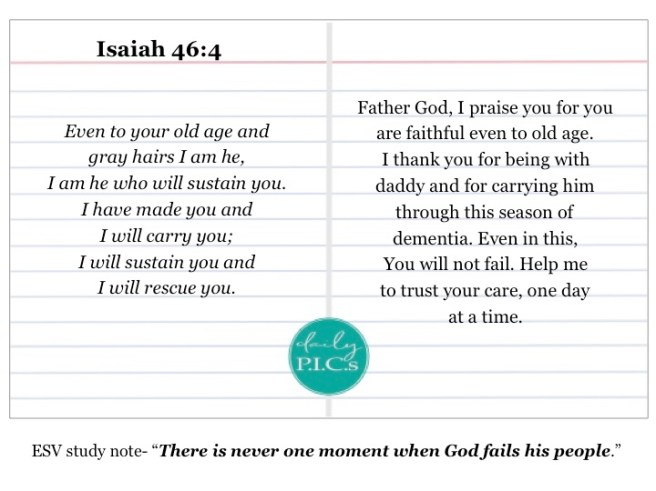 Isaiah 46:4
Even to your old age and
gray hairs I am he,
I am he who will sustain you.
I have made you and
I will carry you;
I will sustain you and
I will rescue you.
Father God, I praise you for you
are faithful even to old age.
I thank you for being with
daddy and for carrying him
through this season of
dementia. Even in this,
You will not fail. Help me
to trust your care, one day
at a time.
daily
P.I.C.s
ESV study note- “There is never one moment when God fails his people.”